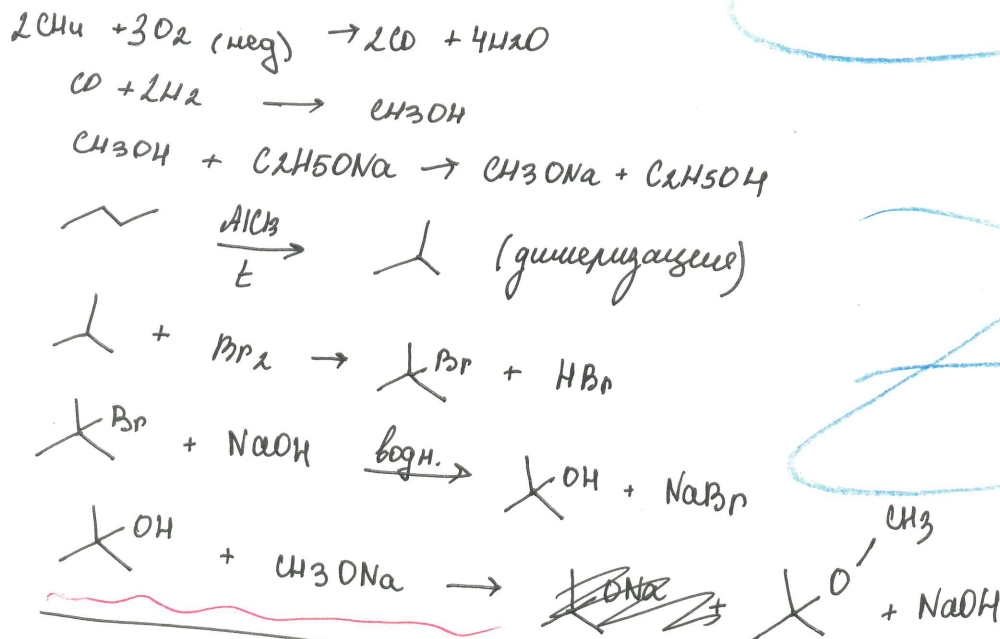 2CH4 + 3O2 (нед) → 2CO + 4H2O
CO + 2H2 → CH3OH
CH3OH + C2H5ONa → CH3ONa + C2H5OH
AlCl3
t → (димеризация)
+ Br2 → Br + HBr
Br + NaOH водн. → OH + NaBr
CH3
OH + CH3ONa → ONa + O + NaOH